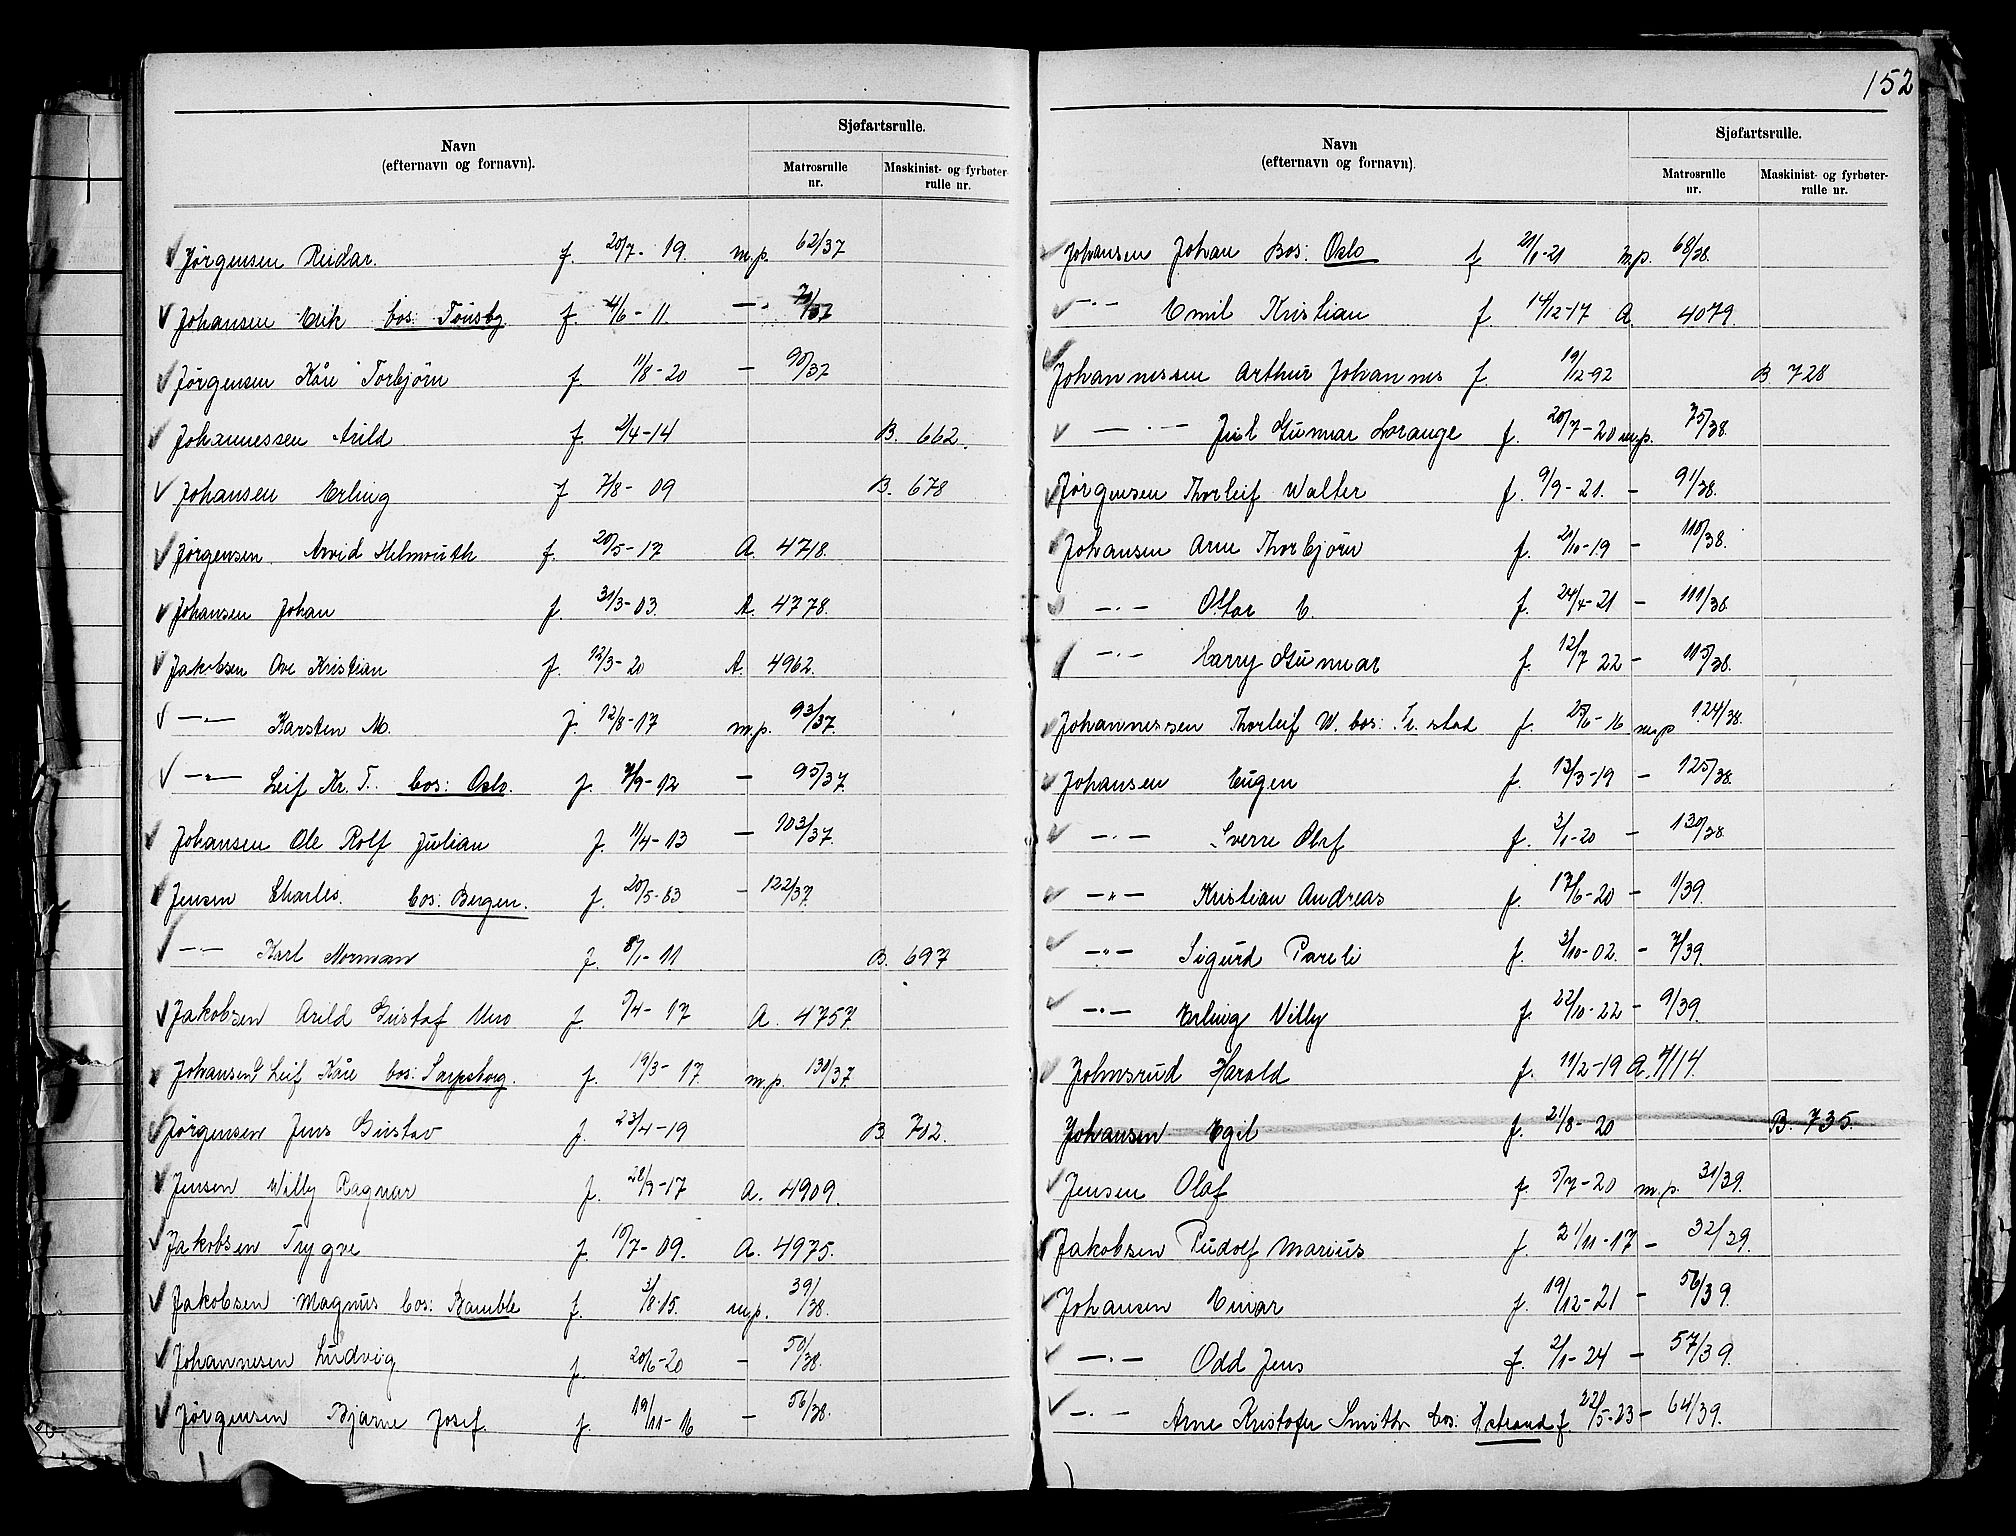 Navn
(efternavn og fornavn).
Sjøfartsrulle.
Matrosrulle nr.
Maskinist- og fyrbøter-rulle nr.
Jørgensen Reidar. f. 20/7 - 19. m.p. 62/37
Johansen Erik bos: Tønsby f. 4/6 - 11. — " /37
Jørgensen Kåre Torbjørn f 11/8 - 20 — 90/37
Johannessen Arild f. 2/4 - 14 B. 662.
Johansen Erling f 7/8 - 09 B. 678
Jørgensen Arvid Helmuth f. 20/5 - 17 A. 4718.
Johansen Johan f. 31/3 - 03. A. 4778.
Jakobsen Ove Kristian f. 12/3 - 20 A. 4962.
—"— Karsten M. f. 12/8 - 17 m.p. 93/37.
—"— Leif Kr. T. bos: Oslo. f. /9 - 12 — 95/37.
Johansen Ole Rolf Julian f. 11/4 - 13 — 103/37.
Jensen Charles. bos: Bergen. f. 20/5 - 83 — 122/37.
—"— Karl Norman f. 8/1 - 11 B. 697
Jakobsen Arild Gustaf f /4 - 17 A. 4757
Johansen Leif Kåre bos: Sarpsborg. f. 19/3 - 17. m.p. 130/37
Jørgensen Jens Gustav f. 23/4 - 19 B. 702.
Jensen Willy Ragnar f. 28/9 - 17 A. 4909.
Jakobsen Trygve f 10/7 - 09. A. 4975.
Jakobsen Magnus bos: Bamble f. 3/8 - 15. m.p. 39/38.
Johannesen Ludvig f. 20/6 - 20 — 50/38.
Jørgensen Bjarne Josef. f. 19/11 - 16 — 56/38.
152
Navn
(efternavn og fornavn).
Sjøfartsrulle.
Matrosrulle nr.
Maskinist- og fyrbøter-rulle nr.
Johansen Johan Bos: Oslo f 21/1 - 21 m.p. 68/38.
—"— Emil Kristian f. 14/12 - 17 A. 4079.
Johannessen Arthur Johannes f 19/12 - 92 B. 728
—"— Juel Gunnar Lorange f. 20/7 - 20 m.p. 75/38.
Jørgensen Thorleif Walter f. 9/9 - 21. — 91/38.
Johansen Arne Thorbjørn f. 21/10 - 19 — 110/38.
—"— Ottar E. f. 24/4 - 21 — 111/38.
—"— Harry Gunnar f. 12/7 22 — 115/38.
Johannessen Thorleif W. bos: Fr. stad f. 25/6 - 16 m.p 124/38.
Johansen Eugen f. 13/3 - 19 — 125/38.
—"— Sverre Olaf f. 3/1 - 20 — 130/38
—"— Kristian Andreas f. 17/6 - 20 — 1/39.
—"— Sigurd Pareli f. 3/10 - 02. — 7/39.
—"— Erling Villy f. 22/10 - 22 — 9/39.
Johnsrud Harald f. 11/2 - 19 A. 4114.
Johansen Egil f. 21/8 - 20 B. 735.
Jensen Olaf f. 5/7 - 20 m.p. 31/39.
Jakobsen Rudolf Marius f. 21/11 - 17 — 32/39.
Johansen Einar f. 19/12 - 21 — 56/39.
—"— Odd Jens f. 2/1 - 24 — 57/39.
—"— Arne Kristofer Smith bos: f. 22/5 - 23 — 64/39.